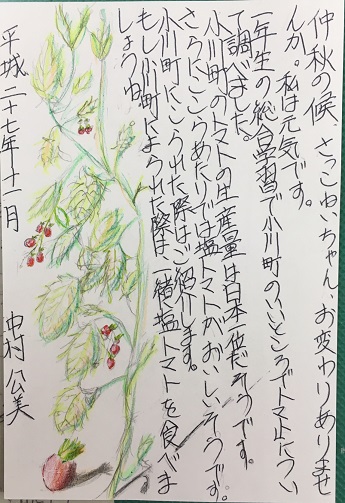 仲秋の候、さっこゆいちゃん、お変わりありませ
んか。私は元気です。
一年生の総合学習で小川町のいいところでトマトについ
て調べました。
小川町のトマトの生産量は日本一位だそうです。
さらにここらあたりでは塩トマトがおいしいそうです。
小川町にこられた際はご紹介します。
もし小川町によられた際は、一緒塩トマトを食べま
しょうね。
平城二十七年十一月
中村公美